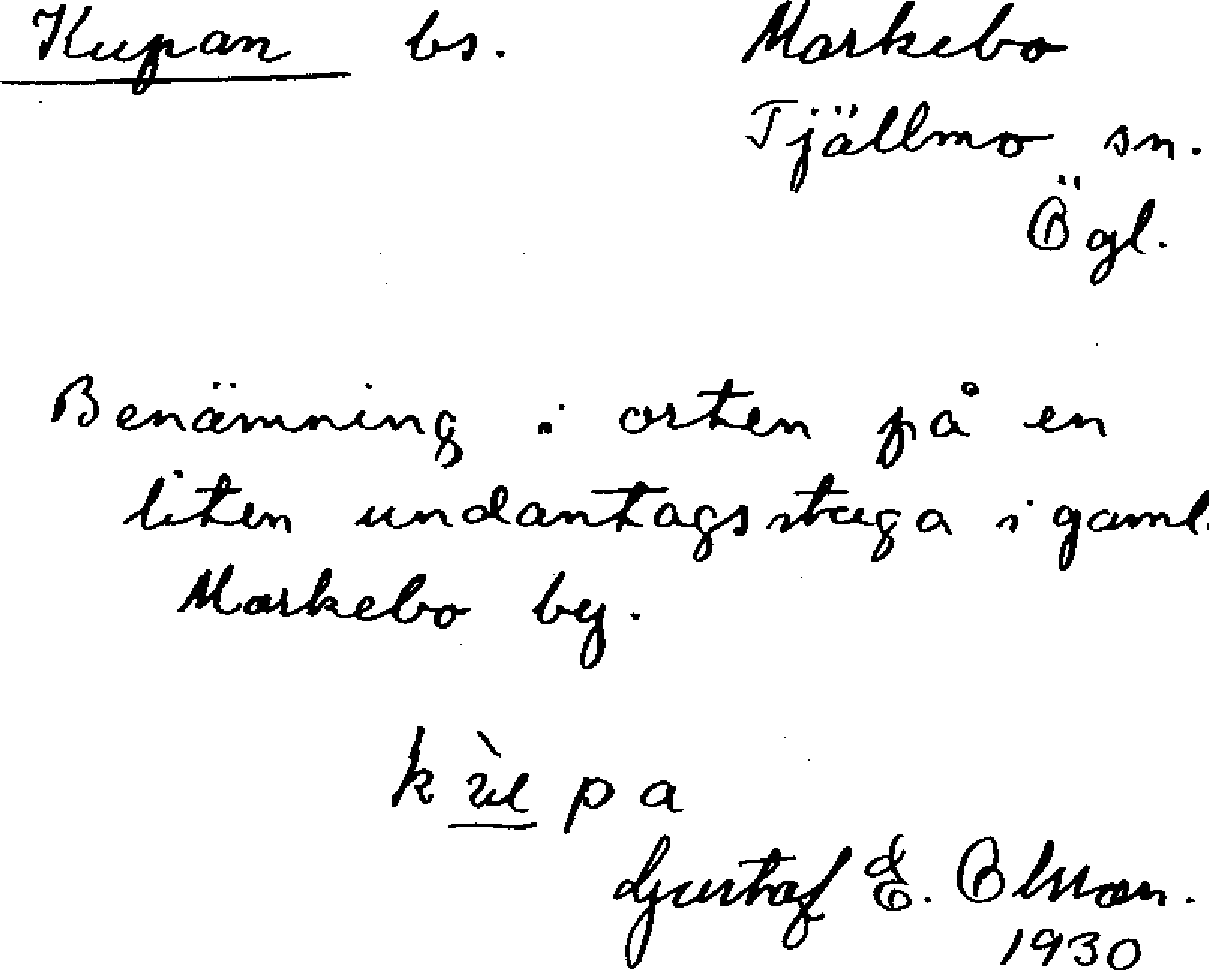 Kupan bs. Markebo
Tjällmo sn.
Ögl.
Benämning i orten på en
liten undantagsstuga i gaml.
Markebo by.
Gustaf E. Olsson.
1930